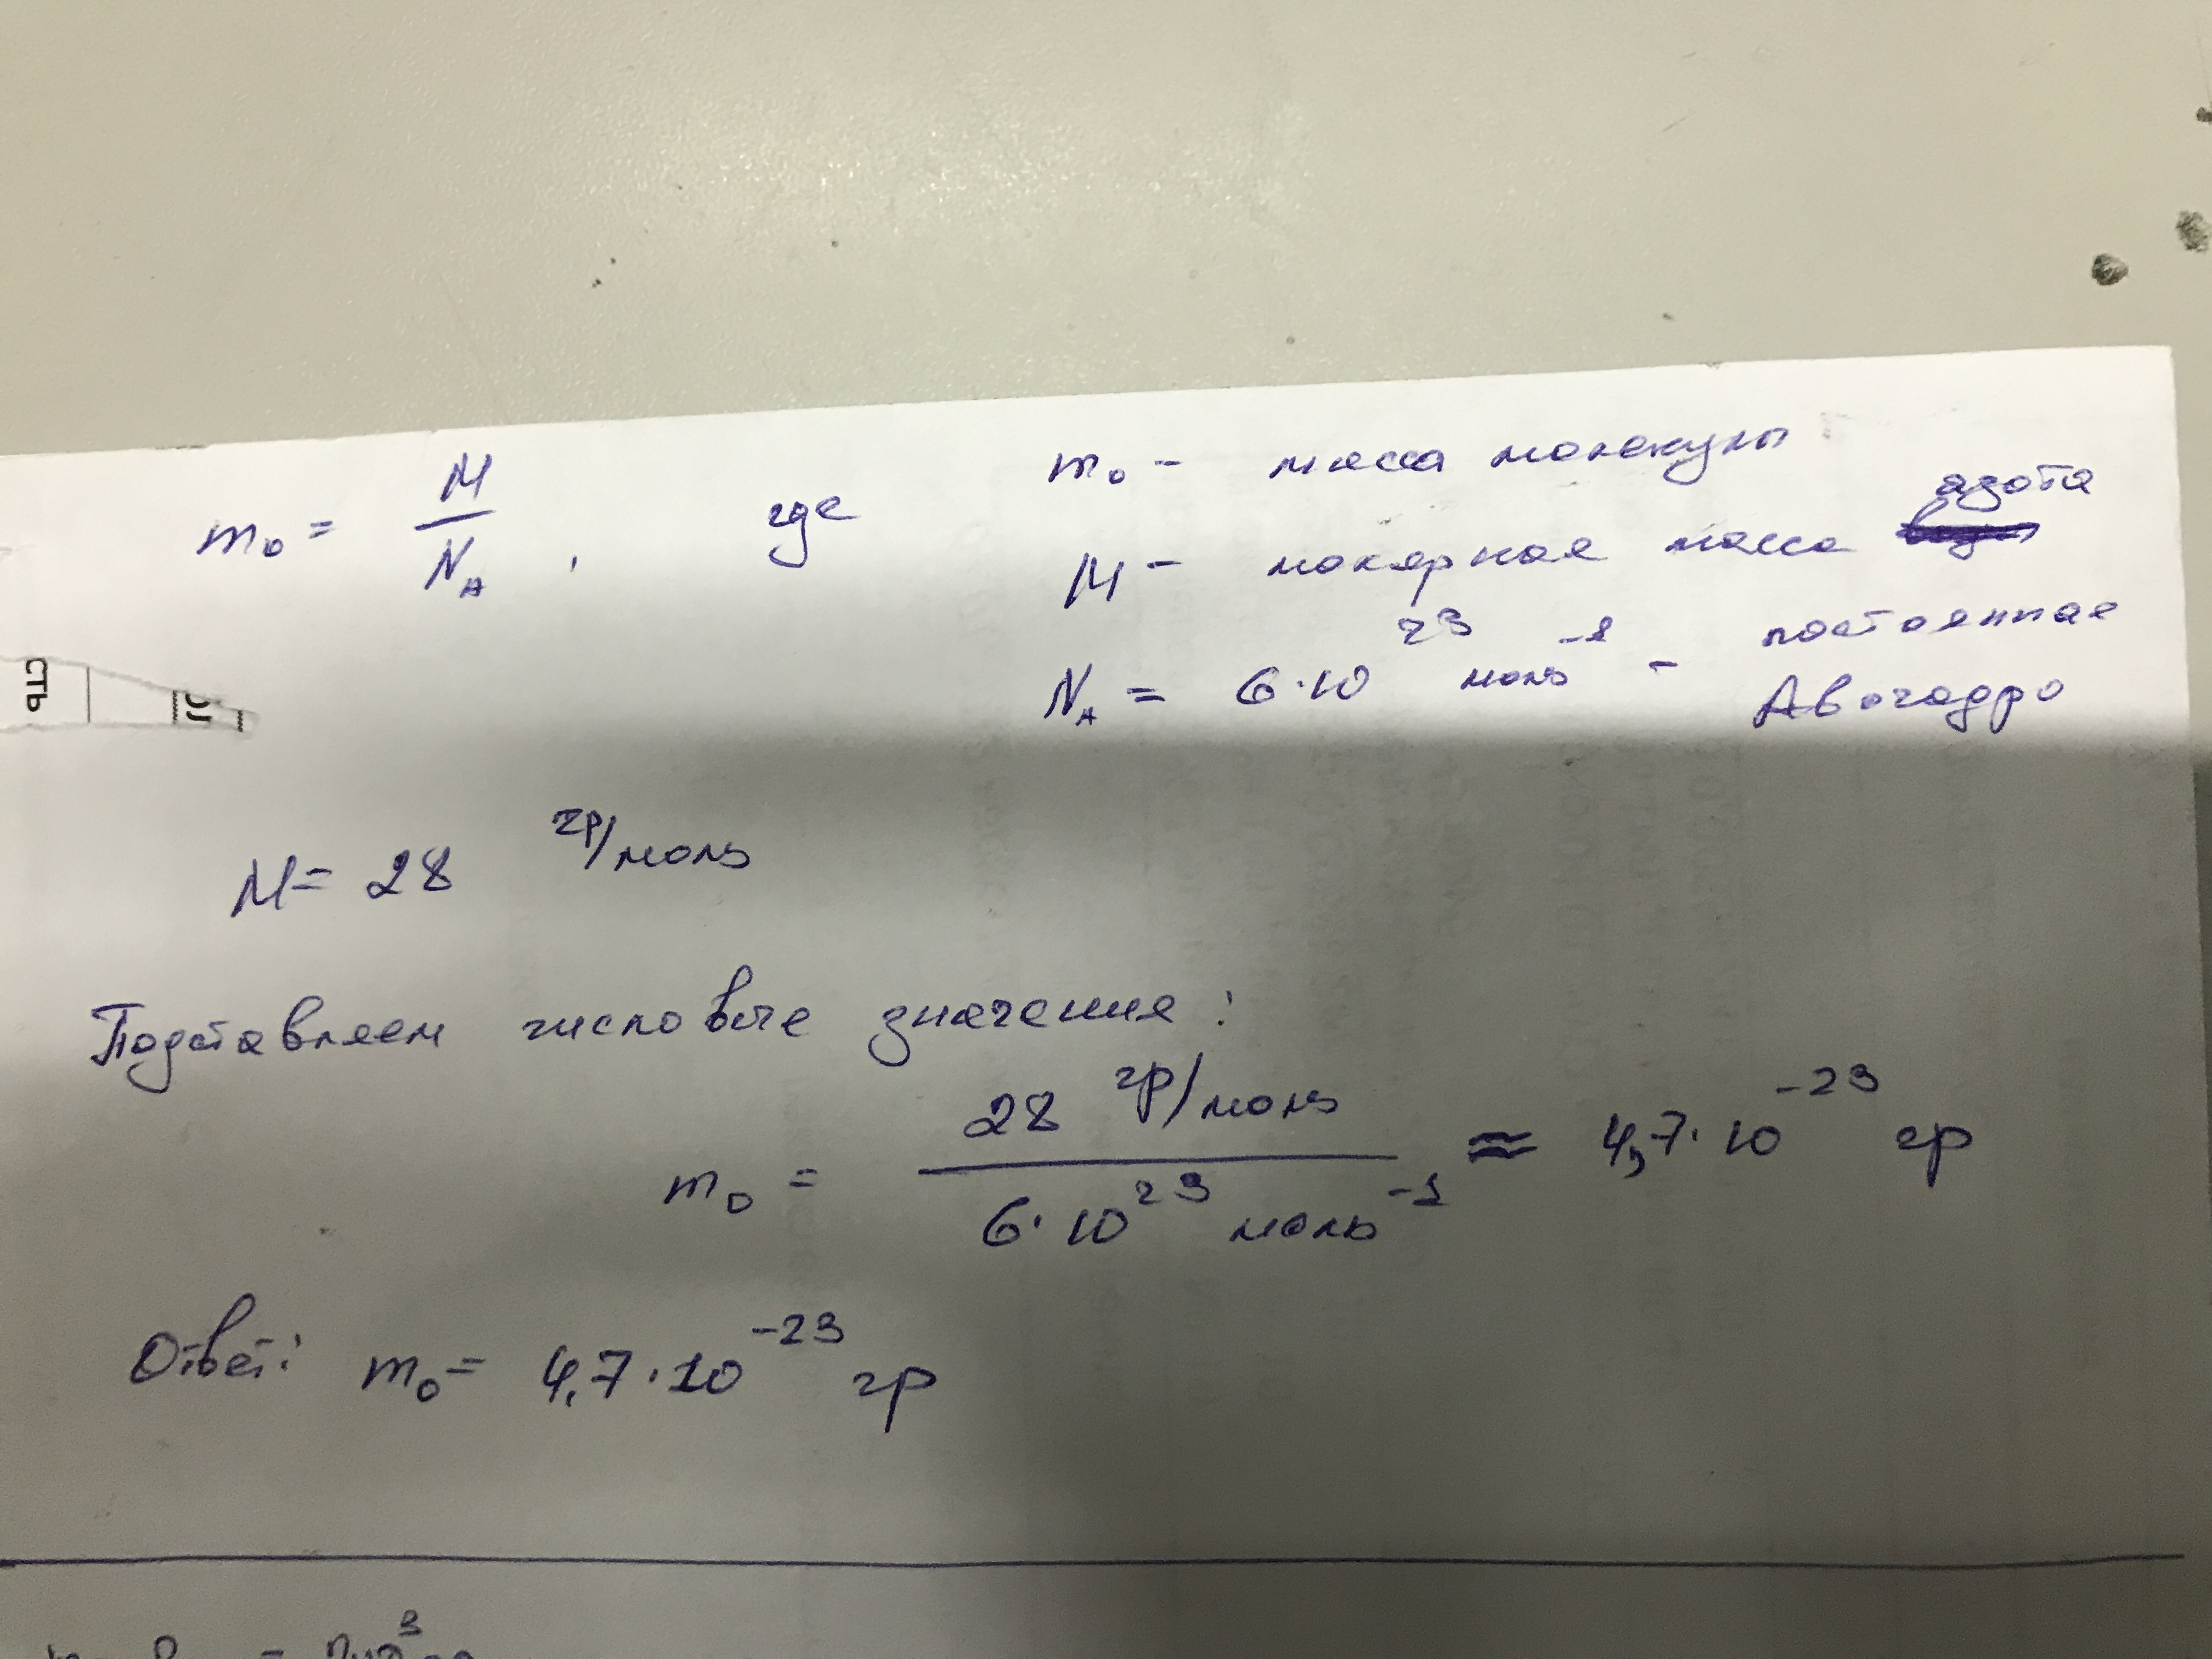 m₀ = M/N_A , где
m₀ – масса молекулы
M – молярная масса азота
N_A = 6·10²³ моль⁻¹ – постоянная
Авогадро
сть
M = 28 гр/моль
Подставляем числовые значения:
m₀ = 28 гр/моль / 6·10²³ моль⁻¹ ≈ 4,7·10⁻²³ гр
Ответ: m₀ = 4,7·10⁻²³ гр